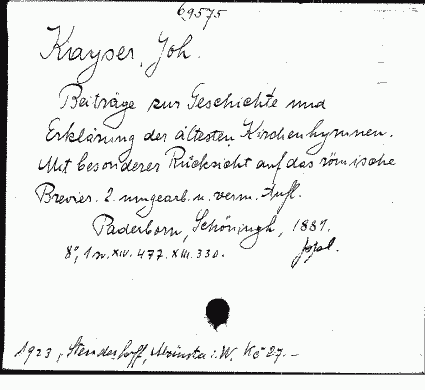 69575
Kayser, Joh.
Beiträge zur Geschichte und
Erklärung der ältesten Kirchenhymnen.
Mit besonderer Rücksicht auf das römische
Brevier. 2. umgearb. u. verm. Aufl.
Paderborn, Schöningh, 1881.
8°, 1 XIV. 477. XIII. 330.
1923, Stenderhoff, Münster i. W. Kč 27.-